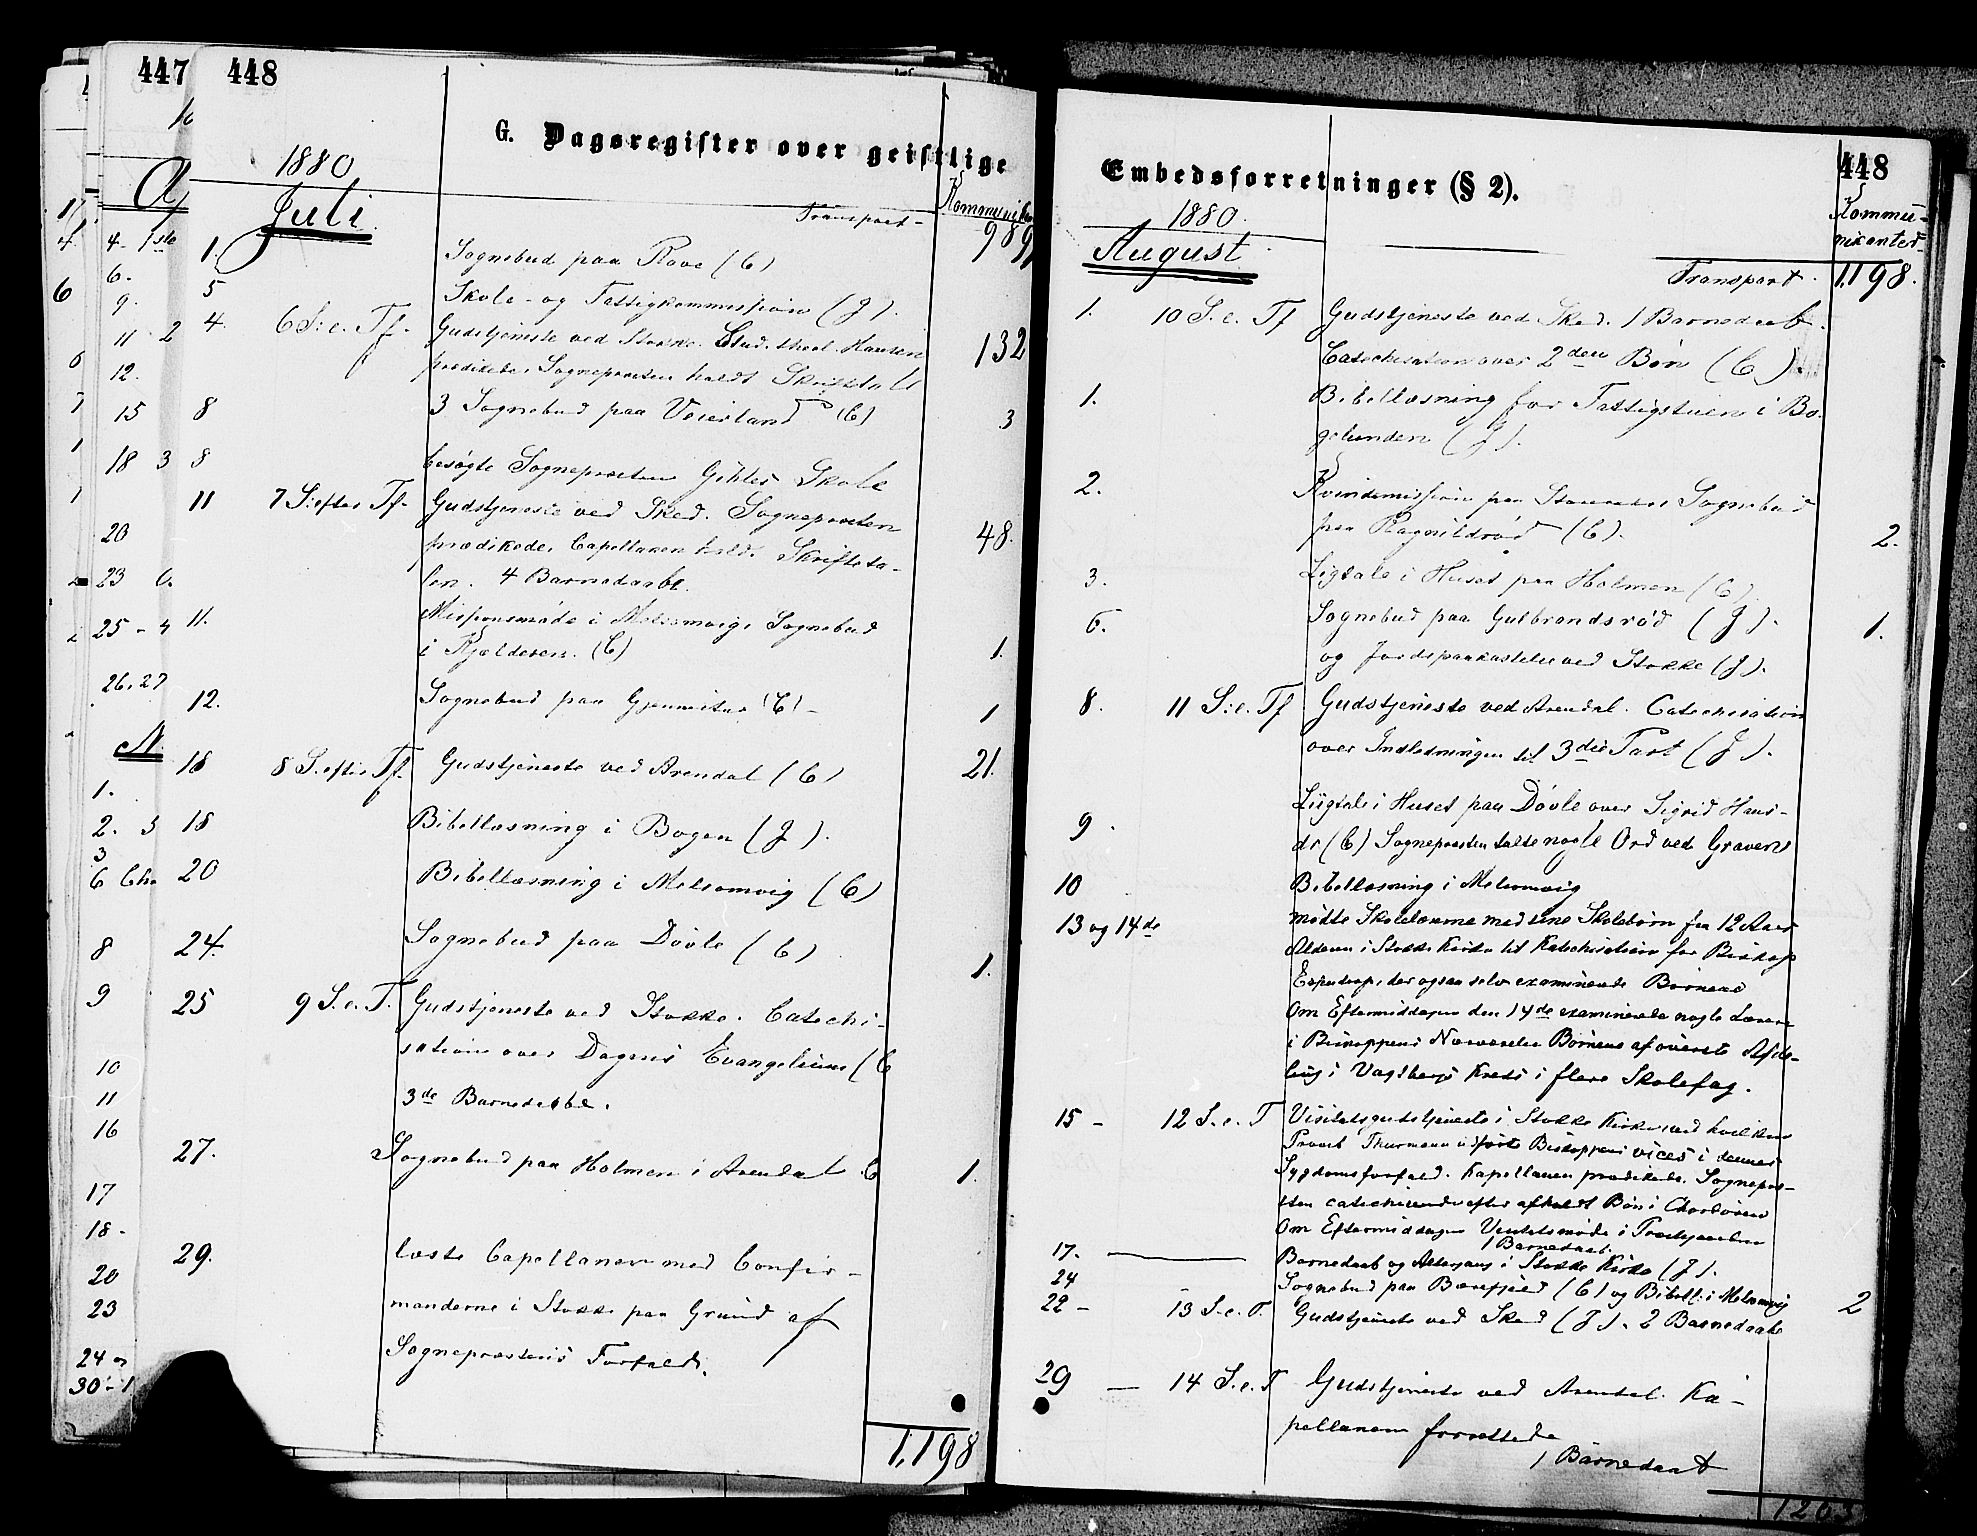 447
448
G. Dagsregister over geistlige
1880
Juli
Transport
989
1. Sognebud paa Rove (C)
5 Skole- og Fattigkommission (J).
4. 6 S: e. Tf. Gudstjeneste ved Stokke. Stud. theol. Hansen 132
prædikede, Sognepræsten holdt Skriftetale
8 3 Sognebud paa Veierland (C) 3
8 besøgte Sognepræsten Gihles Skole
11 7 S: efter Tf. Gudstjeneste ved Sked. Sognepræsten
prædikede, Capellanen holdt Skrifteta- 48.
len. 4 Barnedaabe.
11. Missionsmøde i Melsomvig, Sognebud
i Kjælderen. (C) 1.
12. Sognebud paa (C) 1
18 8 S. efter Tf. Gudstjeneste ved Arendal (C) 21.
18 Bibellæsning i Bogen (J).
20 Bibellæsning i Melsomvig (C)
24. Sognebud paa Døvle (C) 1.
25 9 S. e. T. Gudstjeneste ved Stokke. Catechi-
sation over Dagens Evangelium (C
3de Barnedaabe.
27. Sognebud paa Holmen i Arendal C 1.
29. læste Capellanen med Confir-
manderne i Stokke paa Grund af
Sognepræstens Forfald.
1,198
Embedsforretninger (§ 2).
448
1880.
August
Kommu-
nikanter
Transport 1,198.
1. 10 S. e. Tf Gudstjeneste ved Sked. 1 Barnedaab.
Catechisation over 2den Bøn (C).
1. Bibellæsning for Fattigstuen i Bo-
gelunden (J).
2. Kvindemission paa Sognebud
paa Ragnildrød (C). 2.
3. Ligtale i Huset paa Holmen (C)
6. Sognebud paa Gulbrandsrød (J). 1.
og Jordspaakastelse ved Stokke (J).
8. 11 S: e. Tf Gudstjeneste ved Arendal. Catechisation
over Indledningen til 3die Part (J).
9. Liigtale i Huset paa Døvle over Sigrid Hans-
dr (C) Sognepræsten talte nogle Ord ved Graven
10 Bibellæsning i Melsomvig
13 og 14de mødte Skolelærerne med sine Skolebørn fra 12 Aars
Alderen i Stokke Kirke til Katechisation for Biskop
Essendrop, der ogsaa selv examinerede Børnene
Om Eftermiddagen den 14de examinerede nogle Lærere
i Biskoppens Nærværelse Børnene af øverste Afde-
ling i Kreds i flere Skolefag.
15 - 12 S. e. T Visitatsgudstjeneste i Stokke Kirke, ved hvilken
Provst Thurmann udførte Biskoppens vices i dennes
Sygdomsforfald. Kapellanen prædikede. Sognepræ-
sten catechiserede efter afholdt Bøn i Chordøren
Om Eftermiddagen Visitatsmøde i Præstegaarden
1 Barnedaab.
17. Barnedaab og Altergang i Stokke Kirke (J).
24 Sognebud paa (C) og Bibell: i Melsomvig 2
22 - 13 S. e. T. Gudstjeneste ved Sked (J). 2 Barnedaabe
29 - 14 S. e. T Gudstjeneste ved Arendal. Ka-
pellanen forrettede
1 Barnedaab